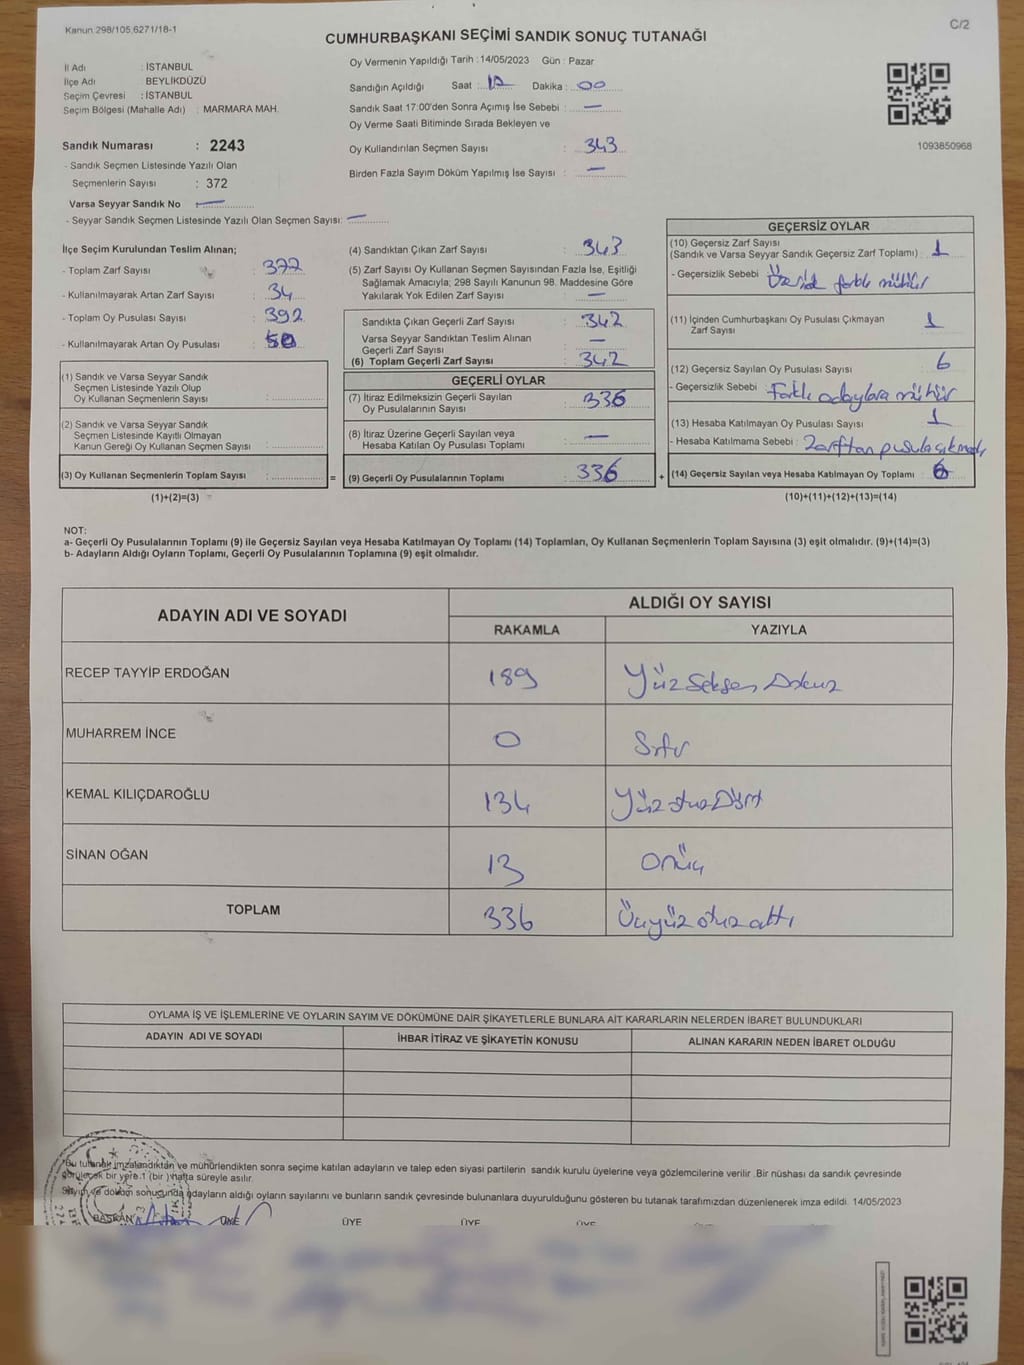 Kanun:298/105,6271/18-1
C/2
CUMHURBAŞKANI SEÇİMİ SANDIK SONUÇ TUTANAĞI
İl Adı : İSTANBUL
İlçe Adı : BEYLİKDÜZÜ
Seçim Çevresi : İSTANBUL
Seçim Bölgesi (Mahalle Adı) : MARMARA MAH.
Sandık Numarası : 2243
- Sandık Seçmen Listesinde Yazılı Olan
Seçmenlerin Sayısı : 372
Varsa Seyyar Sandık No —
- Seyyar Sandık Seçmen Listesinde Yazılı Olan Seçmen Sayısı: —
Oy Vermenin Yapıldığı Tarih :14/05/2023 Gün : Pazar
Sandığın Açıldığı Saat : Dakika : 00
Sandık Saat 17:00'den Sonra Açımış İse Sebebi : —
Oy Verme Saati Bitiminde Sırada Bekleyen ve
Oy Kullandırılan Seçmen Sayısı : 343
Birden Fazla Sayım Döküm Yapılmış İse Sayısı : —
1093850968
İlçe Seçim Kurulundan Teslim Alınan;
- Toplam Zarf Sayısı : 377
- Kullanılmayarak Artan Zarf Sayısı : 34
- Toplam Oy Pusulası Sayısı : 392
- Kullanılmayarak Artan Oy Pusulası :
(1) Sandık ve Varsa Seyyar Sandık
Seçmen Listesinde Yazılı Olup
Oy Kullanan Seçmenlerin Sayısı :
(2) Sandık ve Varsa Seyyar Sandık
Seçmen Listesinde Kayıtlı Olmayan
Kanun Gereği Oy Kullanan Seçmen Sayısı :
(3) Oy Kullanan Seçmenlerin Toplam Sayısı : =
(1)+(2)=(3)
(4) Sandıktan Çıkan Zarf Sayısı : 343
(5) Zarf Sayısı Oy Kullanan Seçmen Sayısından Fazla İse, Eşitliği
Sağlamak Amacıyla; 298 Sayılı Kanunun 98. Maddesine Göre
Yakılarak Yok Edilen Zarf Sayısı : —
Sandıkta Çıkan Geçerli Zarf Sayısı : 342
Varsa Seyyar Sandıktan Teslim Alınan
Geçerli Zarf Sayısı : —
(6) Toplam Geçerli Zarf Sayısı : 342
GEÇERLİ OYLAR
(7) İtiraz Edilmeksizin Geçerli Sayılan
Oy Pusulalarının Sayısı : 336
(8) İtiraz Üzerine Geçerli Sayılan veya
Hesaba Katılan Oy Pusulası Toplamı : —
(9) Geçerli Oy Pusulalarının Toplamı : 336 +
GEÇERSİZ OYLAR
(10) Geçersiz Zarf Sayısı
(Sandık ve Varsa Seyyar Sandık Geçersiz Zarf Toplamı) : 1
- Geçersizlik Sebebi : farklı mühür
(11) İçinden Cumhurbaşkanı Oy Pusulası Çıkmayan
Zarf Sayısı : 1
(12) Geçersiz Sayılan Oy Pusulası Sayısı : 6
- Geçersizlik Sebebi : Farklı adaylara mühür
(13) Hesaba Katılmayan Oy Pusulası Sayısı : 1
- Hesaba Katılmama Sebebi : Zarftan pusula çıkmadı
(14) Geçersiz Sayılan veya Hesaba Katılmayan Oy Toplamı : 6
(10)+(11)+(12)+(13)=(14)
NOT:
a- Geçerli Oy Pusulalarının Toplamı (9) ile Geçersiz Sayılan veya Hesaba Katılmayan Oy Toplamı (14) Toplamları, Oy Kullanan Seçmenlerin Toplam Sayısına (3) eşit olmalıdır. (9)+(14)=(3)
b- Adayların Aldığı Oyların Toplamı, Geçerli Oy Pusulalarının Toplamına (9) eşit olmalıdır.
ADAYIN ADI VE SOYADI ALDIĞI OY SAYISI
RAKAMLA YAZIYLA
RECEP TAYYİP ERDOĞAN 189 Yüz Seksen Dokuz
MUHARREM İNCE 0 Sıfır
KEMAL KILIÇDAROĞLU 134 Yüz otuz Dört
SİNAN OĞAN 13 onüç
TOPLAM 336 Üçyüz otuz altı
OYLAMA İŞ VE İŞLEMLERİNE VE OYLARIN SAYIM VE DÖKÜMÜNE DAİR ŞİKAYETLERLE BUNLARA AİT KARARLARIN NELERDEN İBARET BULUNDUKLARI
ADAYIN ADI VE SOYADI İHBAR İTİRAZ VE ŞİKAYETİN KONUSU ALINAN KARARIN NEDEN İBARET OLDUĞU
Bu tutanak imzalandıktan ve mühürlendikten sonra seçime katılan adayların ve talep eden siyasi partilerin sandık kurulu üyelerine veya gözlemcilerine verilir .Bir nüshası da sandık çevresinde
görülecek bir yere 1 (bir ) hafta süreyle asılır.
Sayım ve döküm sonucunda adayların aldığı oyların sayılarını ve bunların sandık çevresinde bulunanlara duyurulduğunu gösteren bu tutanak tarafımızdan düzenlenerek imza edildi. 14/05/2023
BAŞKAN ÜYE ÜYE ÜYE ÜYE